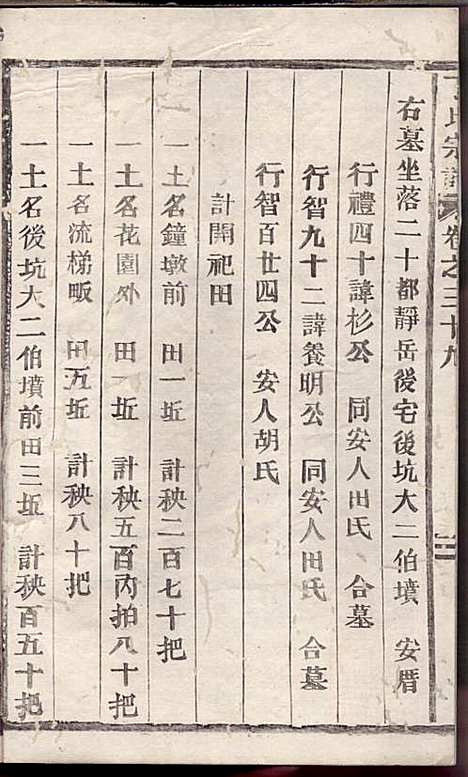 氏宗譜 卷之三十九
右墓坐落二十都靜岳後宅後坑大二伯墳 安厝
行禮四十諱杉公 同安人田氏 合墓
行智九十二諱養明公 同安人田氏 合墓
行智百廿四公 安人胡氏
計開祀田
一土名鐘墩前 田一坵 計秧二百七十把
一土名花園外 田一坵 計秧五百內拍八十把
一土名流梯畈 田五坵 計秧八十把
一土名後坑大二伯墳前田三坵 計秧百五十把